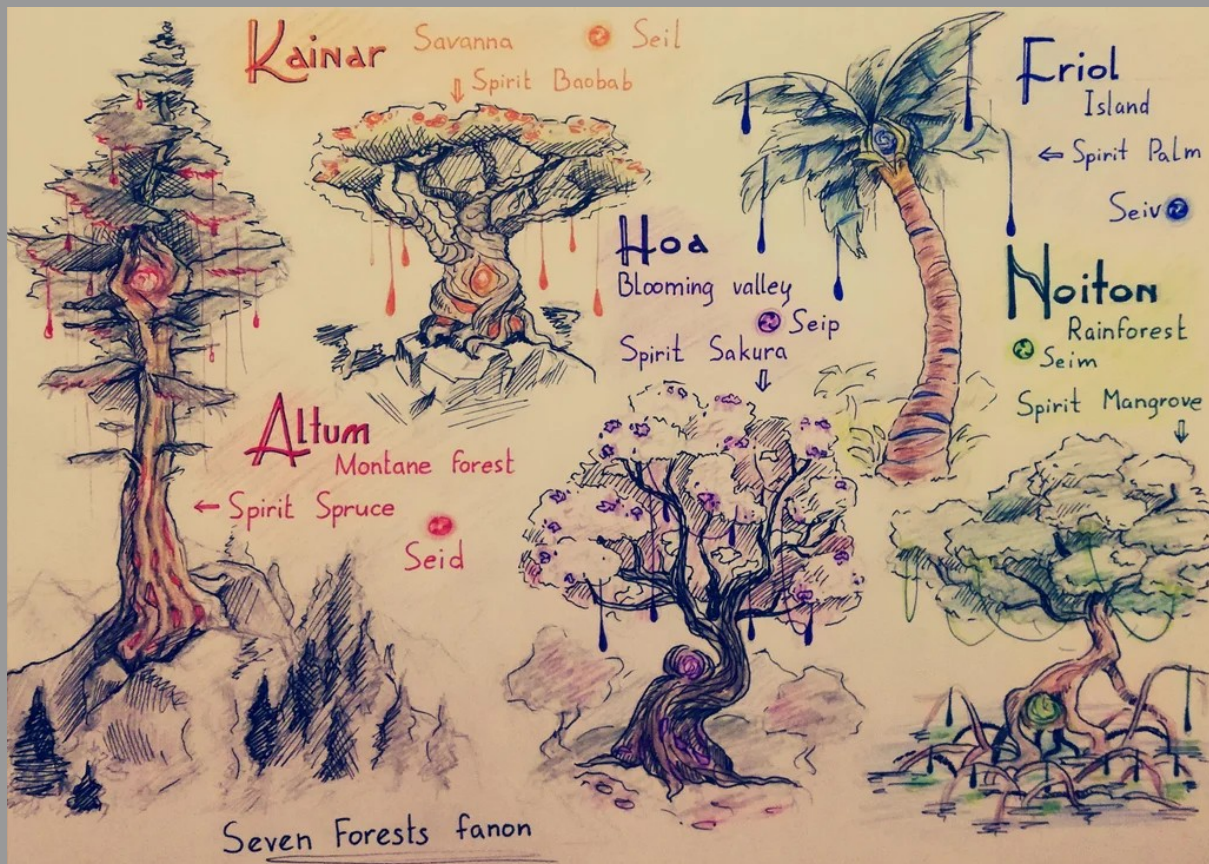 Kainar
Savanna
Seil
Spirit Baobab
Friol
Island
Spirit Palm
Seiv
Hoa
Blooming valley
Seip
Spirit Sakura
Noiton
Rainforest
Seim
Spirit Mangrove
Altum
Montane forest
Spirit Spruce
Seid
Seven Forests fanon